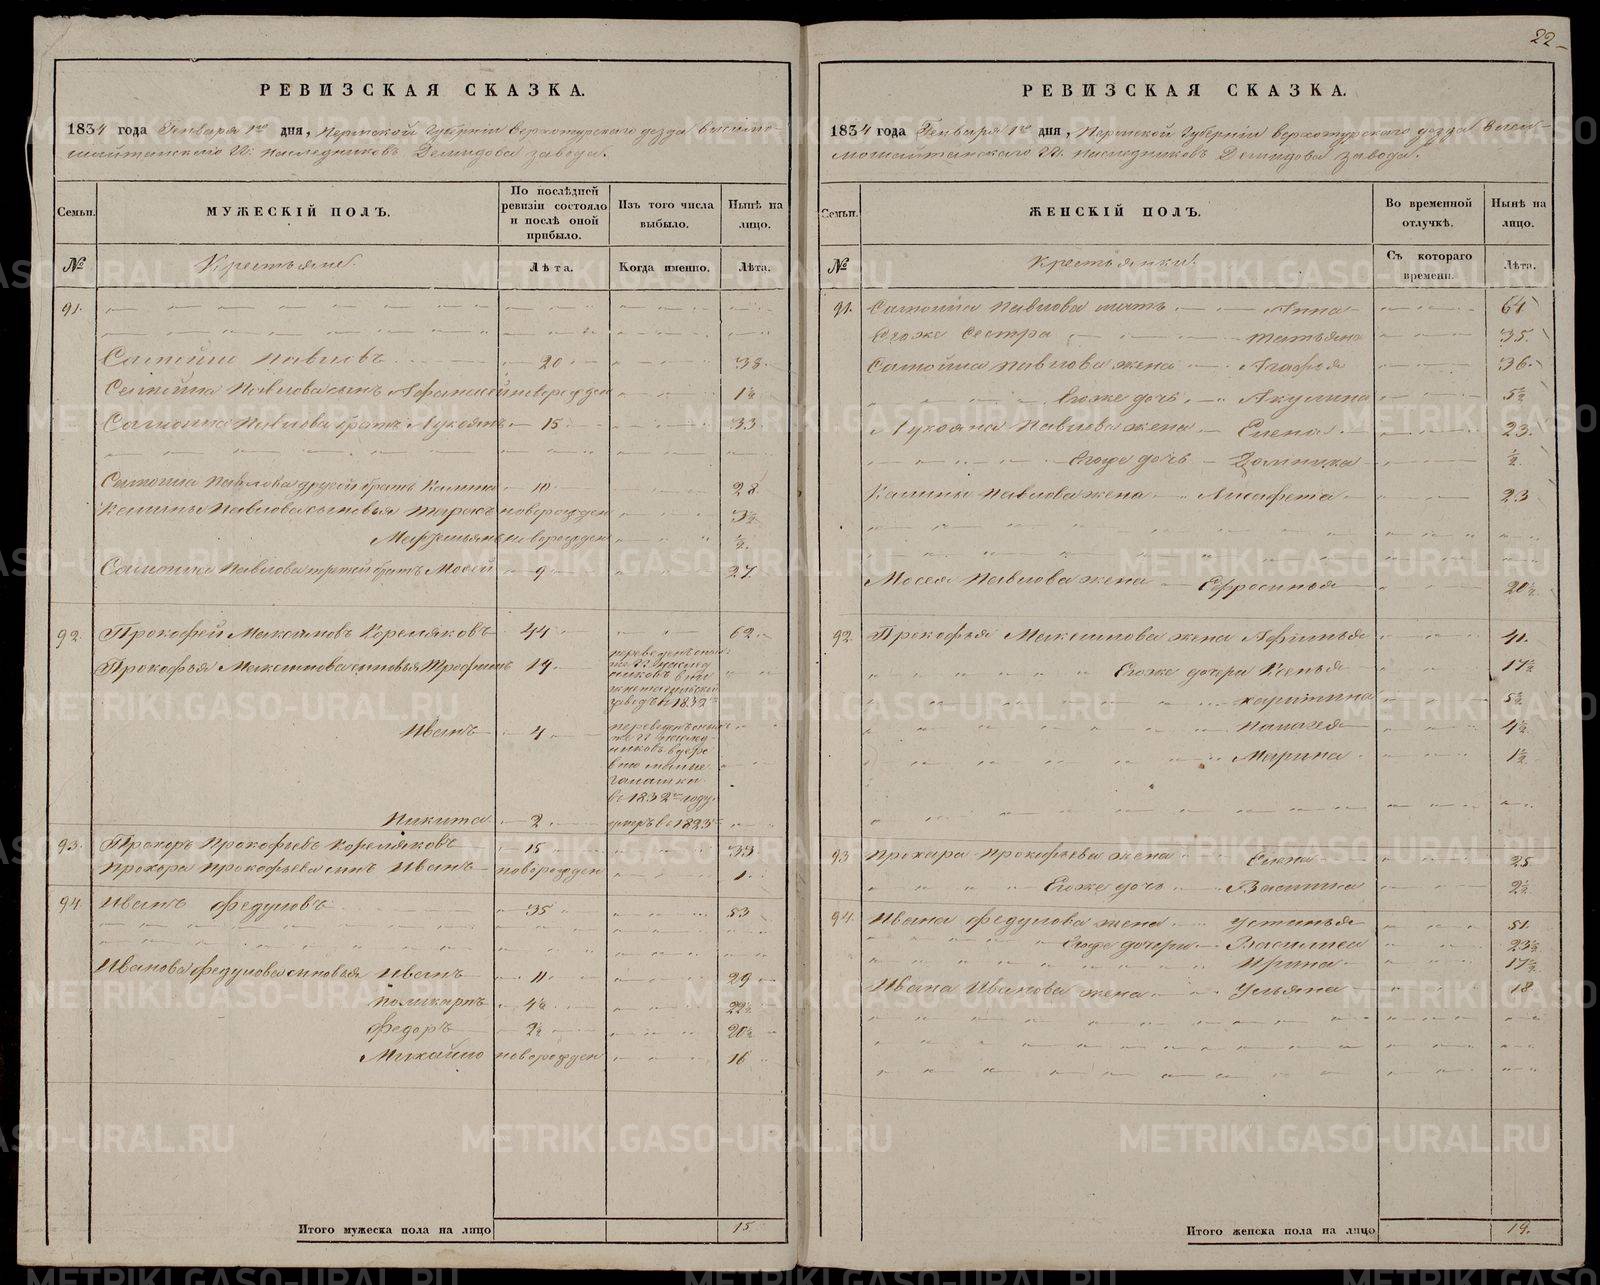 22
РЕВИЗСКАЯ СКАЗКА.
1834 года Генваря 1го дня, Пермской Губернiи Верхотурскаго уезда Висимо-
шайтанскаго П: наследниковъ Демидова завода.
Семьи.
МУЖЕСКIЙ ПОЛЪ.
По послѣдней ревизiи состояло и послѣ оной прибыло.
Изъ того числа выбыло.
Нынѣ на лицо.
№
Крестьяне
Лѣта.
Когда именно.
Лѣта.
91.
Самойло Павловъ 20 38
Самойла Павлова сынъ Афанасей новорожден 1½
Самойла Павлова братъ Лукоянъ 15 33
Самойла Павлова другой братъ Калина 10 28
Калины Павлова сыновья Тарасъ новорожден 3½
новорожден ½
Самойла Павлова третей братъ Мосей 9 27
92. Прокофей Максимовъ Коремяковъ 44 62
Прокофья Максимова сыновья Трофимъ 14
переведенъ
П: наслед
никовъ в ни
жнетагильской
заводъ в 1832
Иванъ 4
переведенъ
П: наслед
никовъ в дере
вню
галашки
въ 1832м году
Никита 2 умръ въ 1823
93. Прохоръ Прокофьевъ Коремяковъ 15 33
Прохора Прокофьева сынъ Иванъ новорожден 1
94 Иванъ Федуловъ 35 53
Иванова Федулова сыновья Иванъ 11 29
Поликарпъ 4½ 22½
Федоръ 2½ 20½
Михайло новорожден 16
Итого мужеска пола на лицо 15
РЕВИЗСКАЯ СКАЗКА.
1834 года Генваря 1го дня, Пермской Губернiи Верхотурскаго уезда Виси-
мошайтанскаго П: наследниковъ Демидова завода.
Семьи.
ЖЕНСКIЙ ПОЛЪ.
Во временной отлучкѣ.
Нынѣ на лицо.
№
Крестьянки
Съ котораго времени.
Лѣта.
91. Самойла Павлова мать Анна 64
Егоже Сестра Татьяна 35
Самойла Павлова жена Агафья 36
Егоже дочь Акулина 5½
Лукояна Павлова жена Елена 23
Егоже дочь Домника ½
Калины Павлова жена 23
Мосея Павлова жена Ефросинья 20½
92. Прокофья Максимова жена Афимья 41
Егоже дочери Ксенья 17½
Харитина 5½
Палагея 4½
Марина 1½
93 Прохора Прокофьева жена Елена 25
Егоже дочь Василиса 2½
94. Ивана Федулова жена Устинья 51
Егоже дочери Василиса 23½
Ирина 17½
Ивана Иванова жена Ульяна 18
Итого женска пола на лицо 19.
METRIKI.GASO-URAL.RU